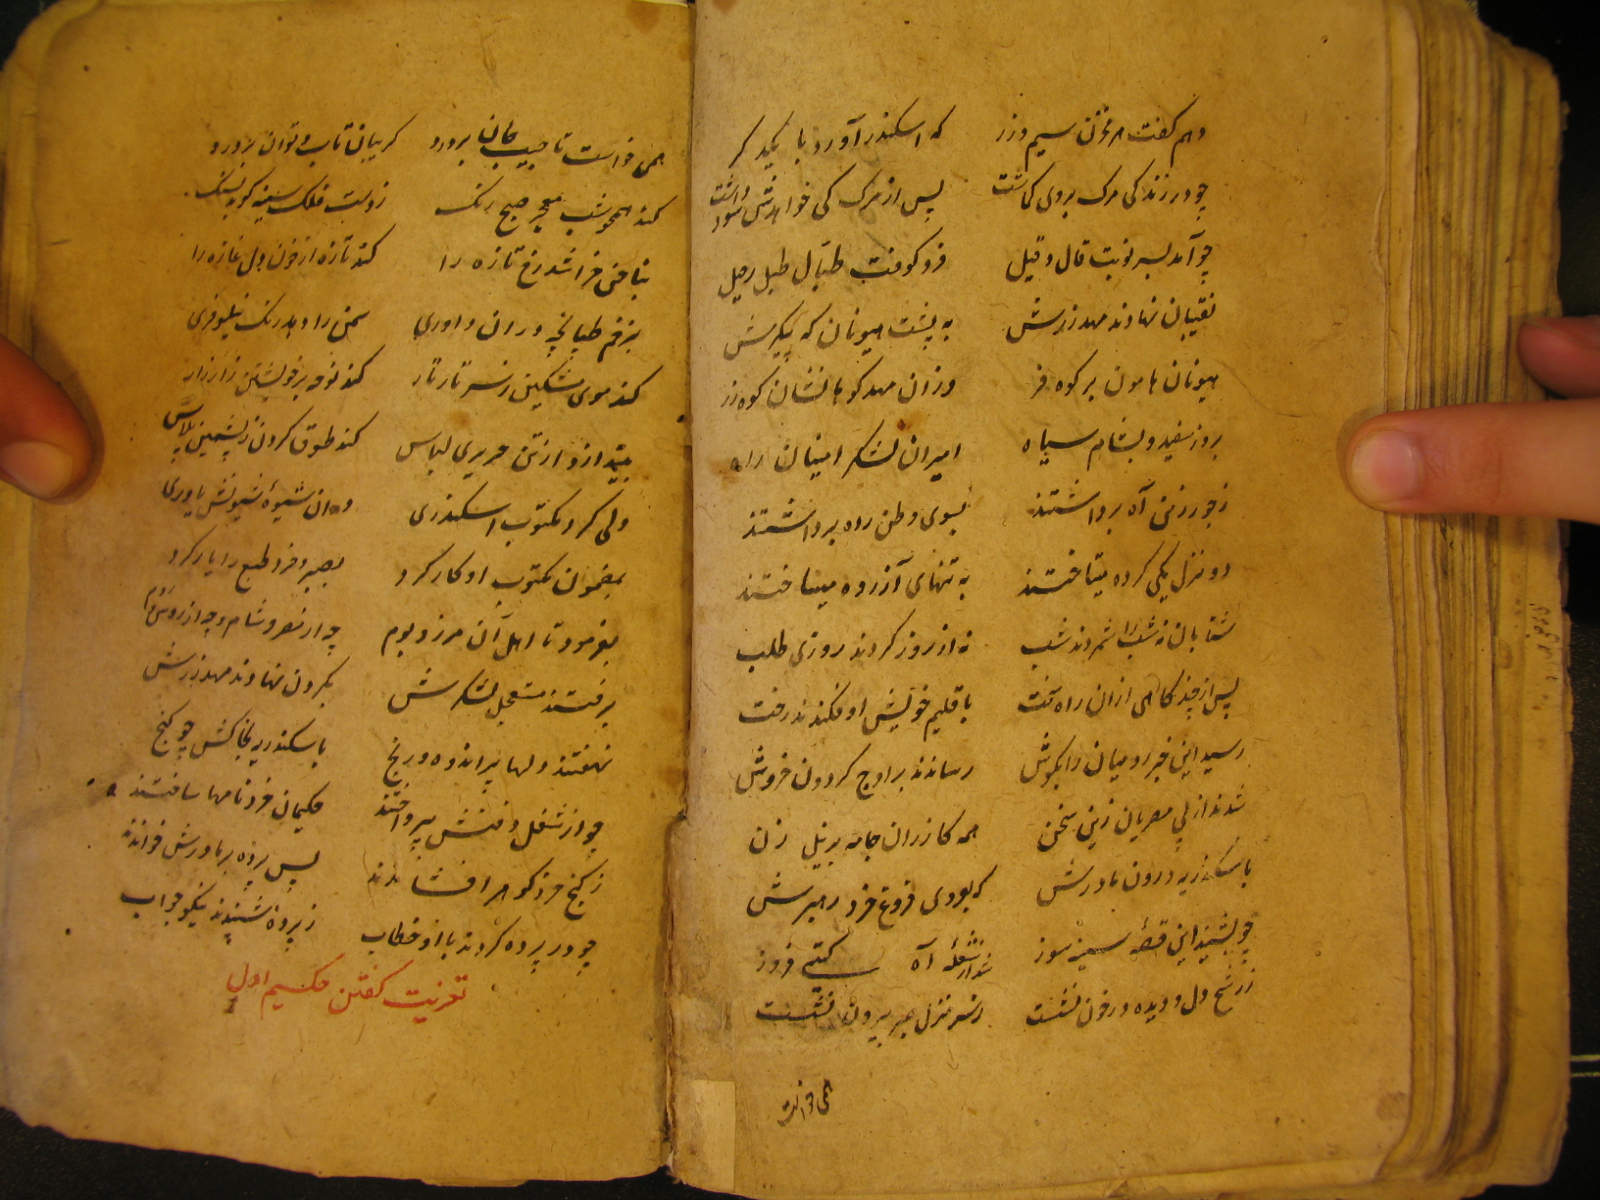 دهم گفت هر مخزن سیم و زر که اسکندر آورد با یکدگر
چو در زندگی مرگ بروی گماشت پس از مرگ کی خواهدش سود داشت
چو آمد بسر نوبت قال و قیل فرو کوفت طبال طبل رحیل
نقیبان نهادند مهد زرش به پشت هیونان که پیکرش
هیونان هامون بر کوه فر وزان مهد کوهانشان کوه زر
بروز سفید و بشام سیاه امیران لشکر امینان راه
ز جور زمن آه برداشتند بسوی وطن راه برداشتند
دو منزل یکی کرده میتاختند به تنهای آزرده میساختند
شتابان نه شب را شمردند شب نه از روز کردند روزی طلب
پس از چند گاهی ازان راه سخت باقلیم خویش اوفکندند رخت
رسید این خبر رومیان را بگوش رساندند بر اوج گردون خروش
شدند از پی مصریان زین سخن همه کازران جامه بر نیل زن
باسکندریه درون مادرش که بودی فروغ خرد رهبرش
چو بشنید این قصه سینه سوز شد از شعله آه گیتی فروز
ز رشح دل و دیده در خون نشست ز سر منزل صبر بیرون نشست
همی خواست
همی خواست تا جیب جان بردرد گریبان تاب و توان بردرد
کند همچو شب معجر صبح رنگ ز دست فلک سینه کوبد بسنگ
بناخن خراشد رخ تازه را کند تازه از خون دل غازه را
بزخم طپانچه دران داوری سمن را دهد رنگ نیلوفری
کند موی مشکین ز سر تار تار کند نوحه بر خویشتن زار زار
بیندازد از تن حریری لباس کند طوق گردن ز پشمین پلاس
ولی کرد مکتوب اسکندری دران شیوه شیونش یاوری
بمضمون مکتوب او کار کرد بصبر و خرد طبع را یار کرد
بفرمود تا اهل آن مرز و بوم چه از مصر و شام و چه از روس و روم
برفتند مستعجل لشکرش بگردن نهادند مهد زرش
نهفتند دلها پر اندوه و رنج باسکندریه بخاکش چو گنج
چو از شغل دفنش بپرداختند حکیمان خردنامها ساختند
ز گنج خرد گوهر افشاندند پس پرده بر مادرش خواندند
چو در پرده کردند با او خطاب ز پرده شنیدند نیکو جواب
تعزیت گفتن حکیم اول